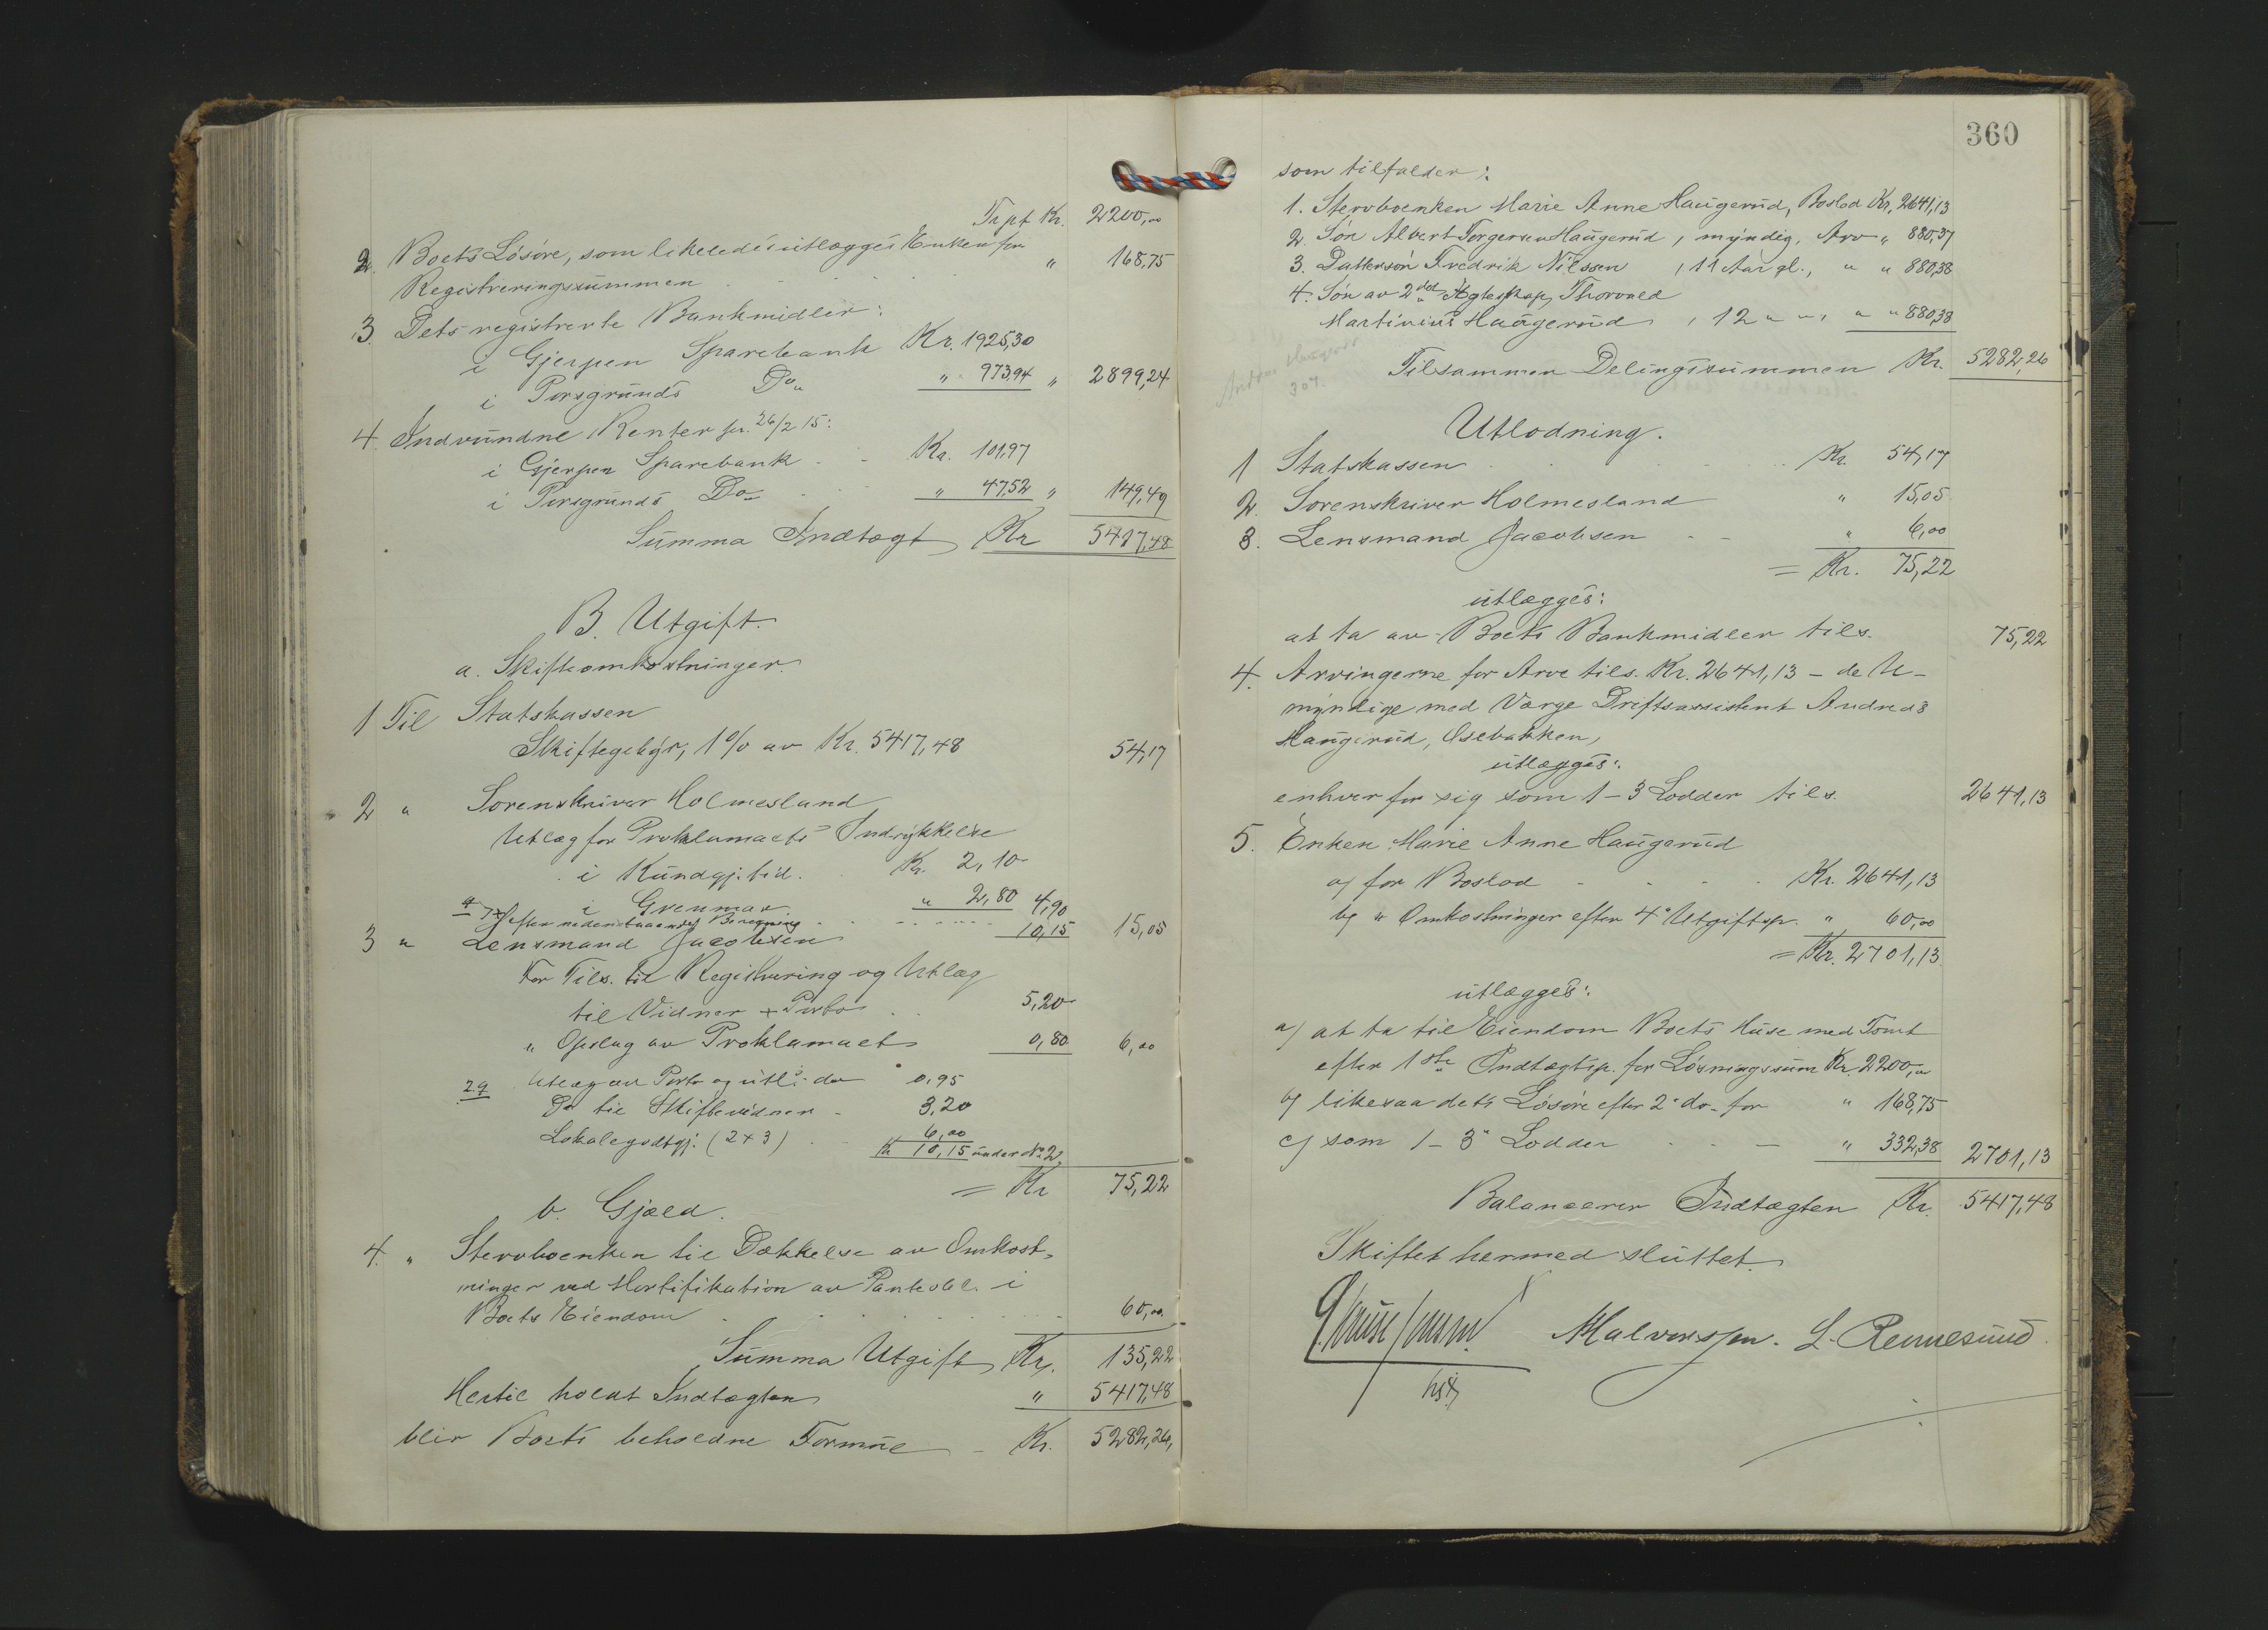 Trpt Kr. 2200,00
2. Boets Løsøre, som likeledes utlægges Enken for
Registreringssummen . . . . " 168,75
3. Dets registrerte Bankmidler:
i Gjerpen Sparebank Kr. 1925,30
i Porsgrunds Do " 973,94 " 2899,24
4. Indvundne Renter pr. 26/2 15:
i Gjerpen Sparebank . . Kr. 101,97
i Porsgrunds Do . . " 47,52 " 149,49
Summa Indtægt Kr 5417,48
B. Utgift.
a. Skifteomkostninger.
1 Til Statskassen
Skiftegebyr, 1% av Kr. 5417,48 54,17
2 " Sorenskriver Holmesland
Utlæg for Proklamaets Indrykkelse
i Kundgj. tid. . Kr. 2,10
i Grenmar " 2,80 4,90
efter nedenstaaende Beregning . . . . 10,15 15,05
3 " Lensmand Jacobsen
For Tils. til Registrering og Utlæg
til Vidner + Porto . . 5,20
" Opslag av Proklamaet 0,80 6,00
29 Utlæg av Porto og utl. do 0,95
Do til Skiftevidner - 3,20
Lokalegodtgj. (2 x 3) . . 6,00
Kr 10,15 under No 2.
= Kr 75,22
b. Gjæld.
4. " Stervboenken til Dækkelse av Omkost-
ninger ved Mortifikation av Panteobl. i
Boets Eiendom . . . . 60,00
Summa Utgift Kr. 135,22
Hertil holdt Indtægten " 5417,48
blir Boets beholdne Formue - Kr. 5282,26,
360
som tilfalder:
1. Stervboenken Marie Anne Haugerud, Boslod Kr. 2641,13
2. Søn Albert Torgersen Haugerud, myndig, Arv " 880,37
3. Dattersøn Fredrik Nilssen , 14 Aar gl., " " 880,38
4. Søn av 2det Ægteskap, Thorvald
Martinius Haugerud , 12 " ", " " 880,38
307.
Tilsammen Delingssummen Kr. 5282,26
Utlodning.
1 Statskassen . . . . Kr. 54,17
2. Sorenskriver Holmesland " 15,05
3. Lensmand Jacobsen - - " 6,00
= Kr. 75,22
utlægges:
at ta av Boets Bankmidler tils. 75,22
4. Arvingerne for Arve tils. Kr. 2641,13 - de U-
myndige med Værge Driftsassistent Andreas
Haugerud, Osebakken,
utlægges:
enhver for sig som 1-3 Lodder tils. 2641,13
5. Enken Marie Anne Haugerud
a) for Boslod - - - - Kr. 2641,13
b) " Omkostninger efter 4° Utgiftsp. " 60,00
= Kr. 2701,13.
utlægges:
a) at ta til Eiendom Boets Huse med Tomt
efter 1ste Indtægtsp. for Løsningssum Kr. 2200,00
b) likesaa dets Løsøre efter 2° do. for " 168,75
c) som 1-3° Lodder - - - " 332,38 2701,13
Balancerer Indtægten Kr. 5417,48
Skiftet hermed sluttet.
L. Rennesund